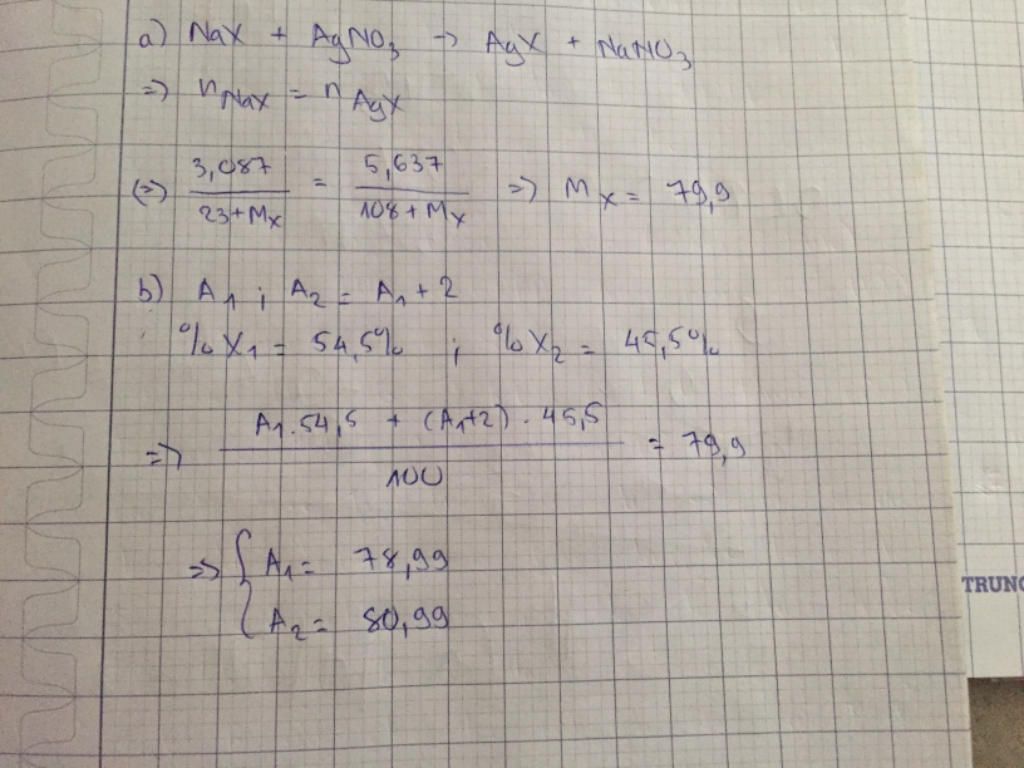 a) NaX + AgNO₃ → AgX + NaNO₃
=> n_NaX = n_AgX
(=) 3,087 / (23+M_X) = 5,637 / (108+M_X) => M_X = 79,9
b) A₁ ; A₂ = A₁ + 2
%X₁ = 54,5% ; %X₂ = 45,5%
=> (A₁.54,5 + (A₁+2) . 45,5) / 100 = 79,9
=> { A₁ = 78,99
A₂ = 80,99
TRUNG